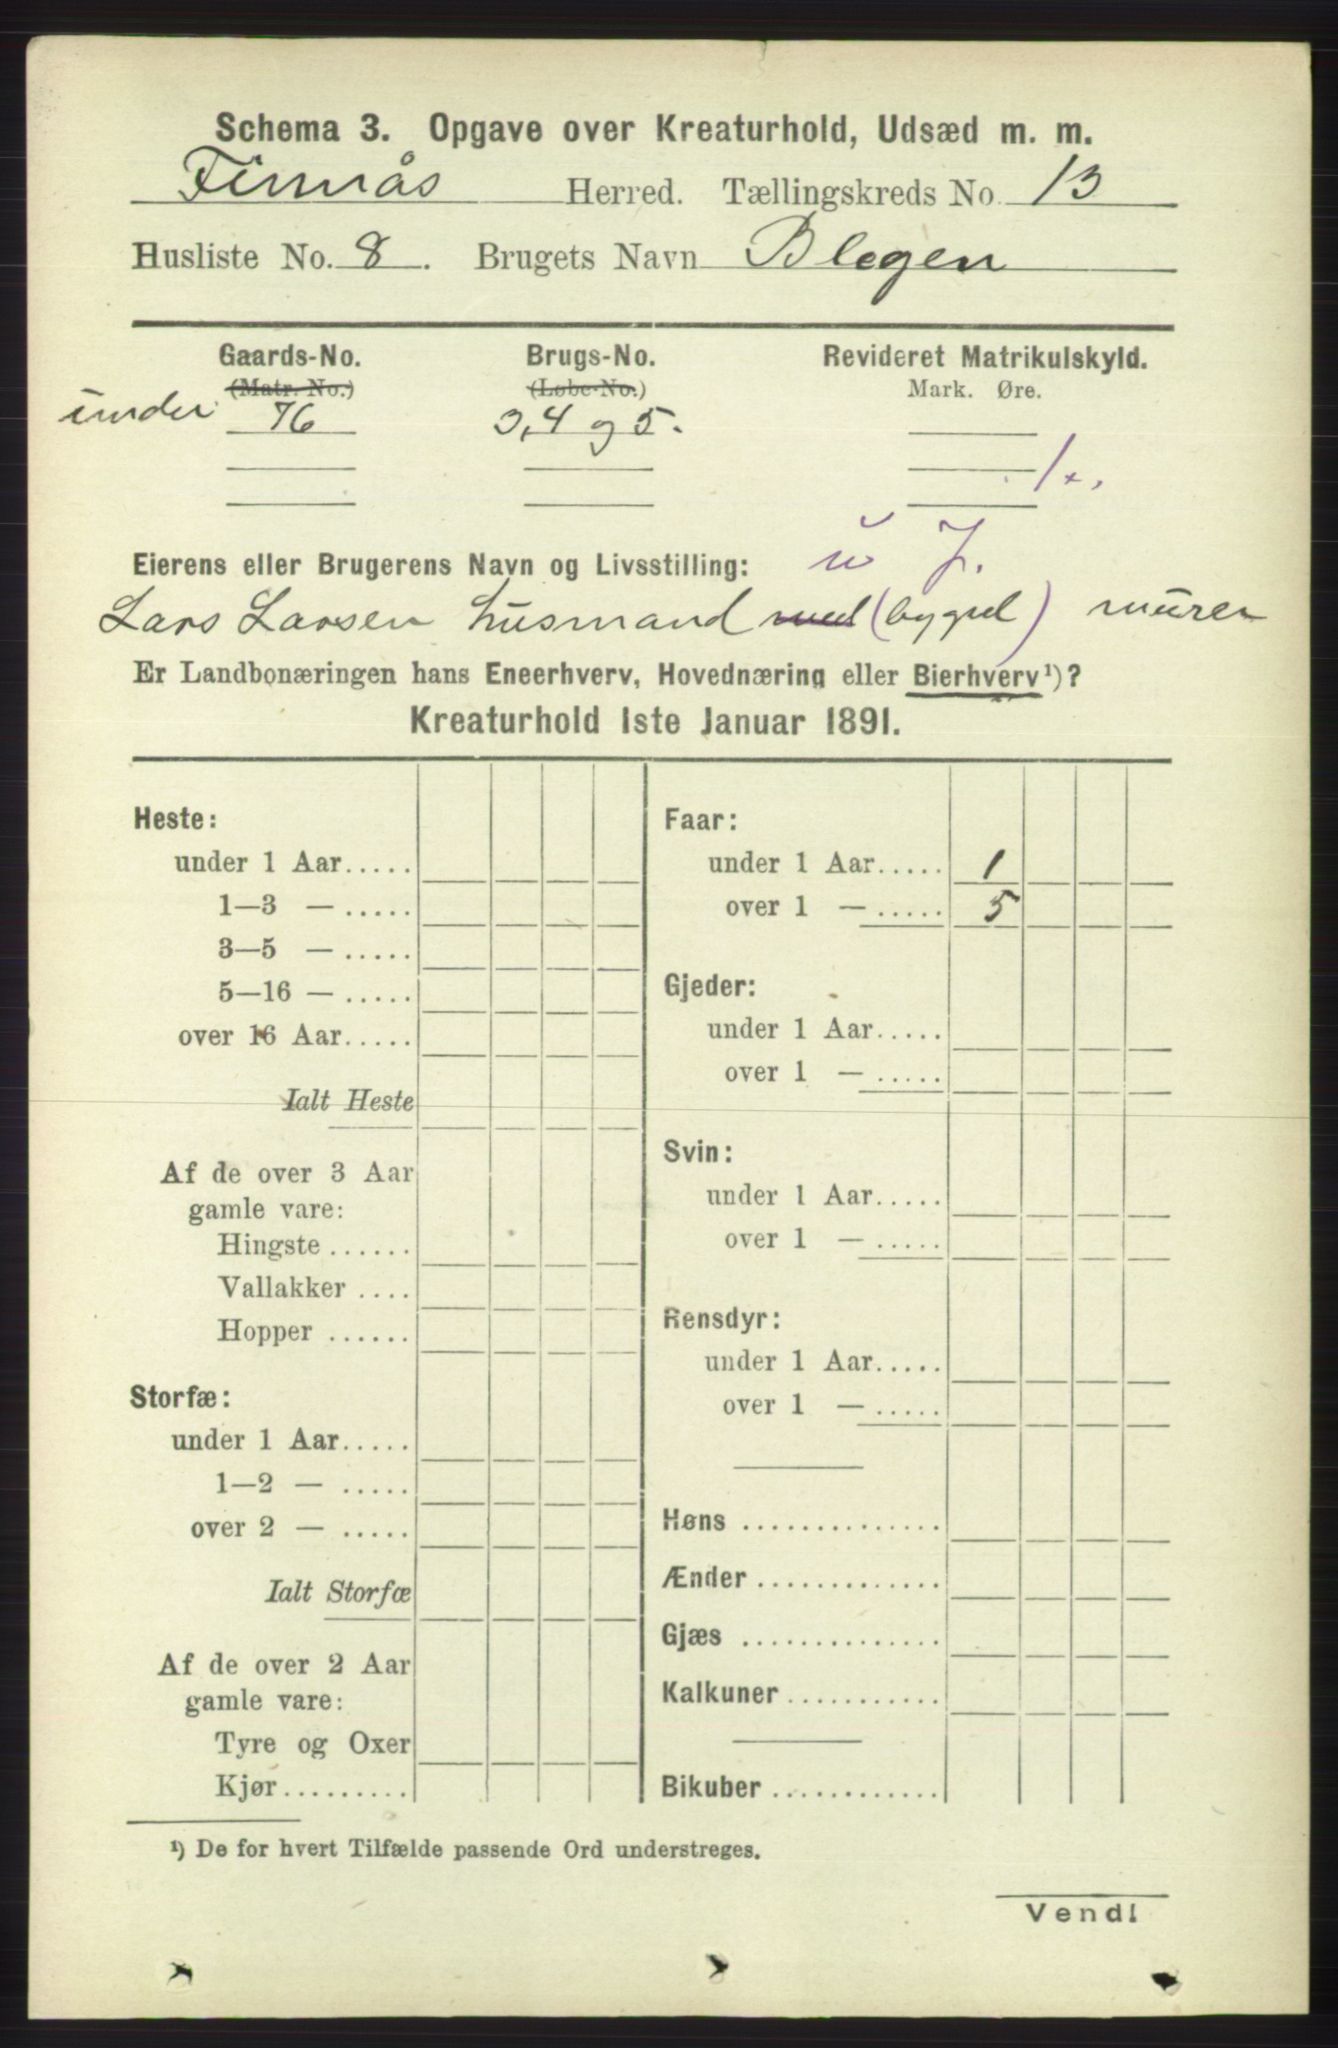 Schema 3. Opgave over Kreaturhold, Udsæd m. m.
Finnås Herred. Tællingskreds No. 13
Husliste No. 8. Brugets Navn Blegen
Gaards-No. Brugs-No. Revideret Matrikulskyld.
(Matr. No.) (Løbe-No.) Mark. Øre.
under 76 3,4 og 5.
Eierens eller Brugerens Navn og Livsstilling: u J.
Lars Larsen Husmand med (bygsel) murer
Er Landbonæringen hans Eneerhverv, Hovednæring eller Bierhverv¹)?
Kreaturhold 1ste Januar 1891.
Heste:
under 1 Aar.....
1—3 — .....
3—5 — .....
5—16 — .....
over 16 Aar.....
Ialt Heste
Af de over 3 Aar
gamle vare:
Hingste ......
Vallakker ....
Hopper ......
Storfæ:
under 1 Aar.....
1—2 — .....
over 2 — .....
Ialt Storfæ
Af de over 2 Aar
gamle vare:
Tyre og Oxer
Kjør.........
Faar:
under 1 Aar..... 1
over 1 — ..... 5
Gjeder:
under 1 Aar.....
over 1 — .....
Svin:
under 1 Aar.....
over 1 — .....
Rensdyr:
under 1 Aar.....
over 1 — .....
Høns ..............
Ænder .............
Gjæs ..............
Kalkuner ...........
Bikuber ............
¹) De for hvert Tilfælde passende Ord understreges.
Vend!